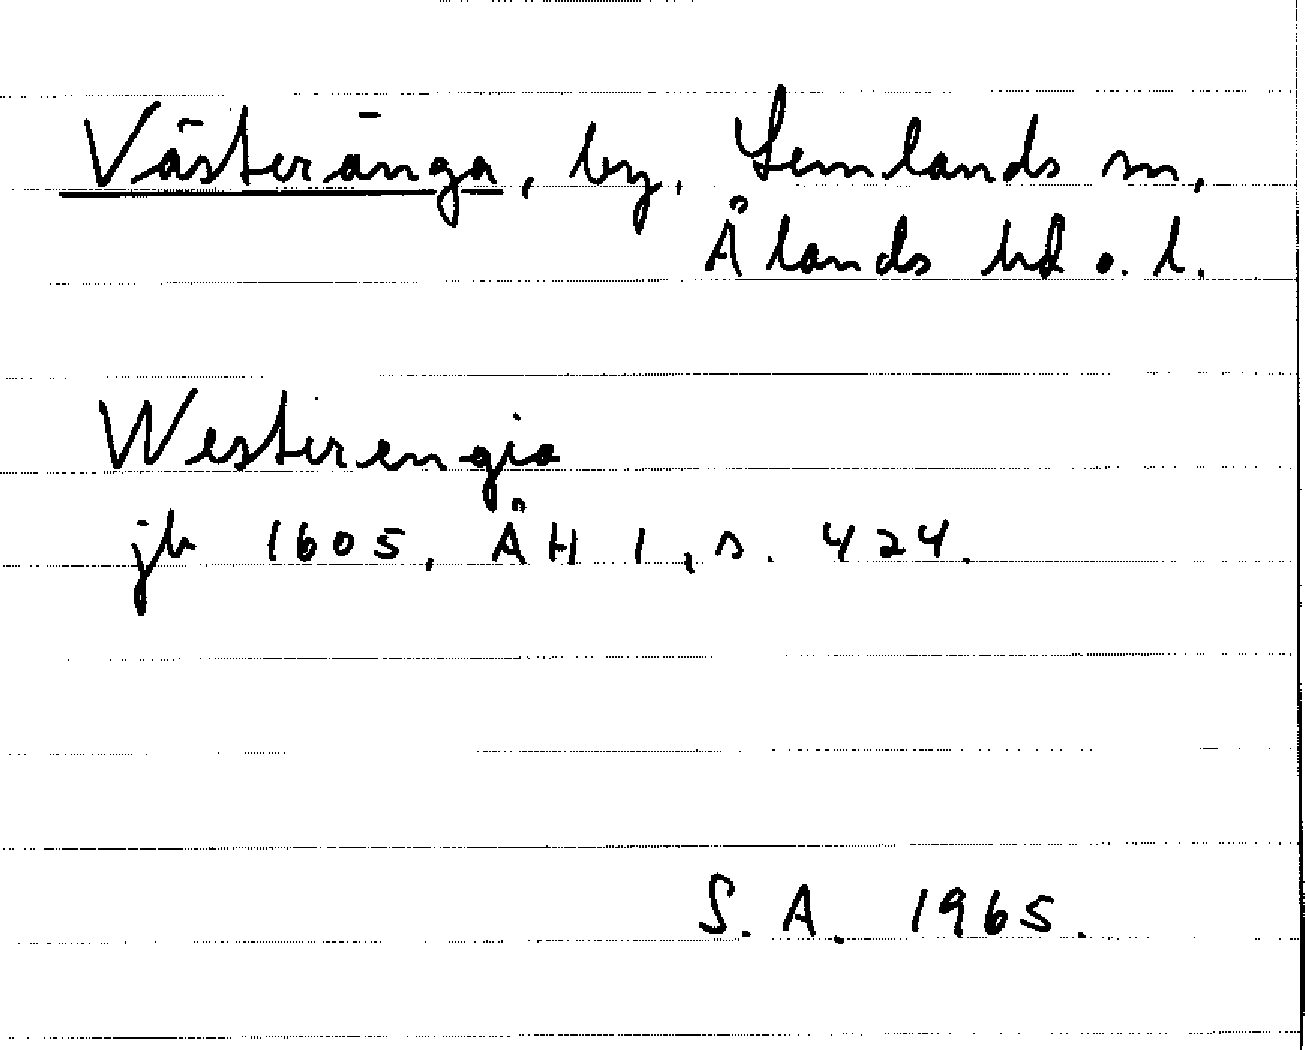 Västeränga, by, Lemlands sn,
Ålands hd o. l.
Westerengia
jb 1605, ÅH 1, s. 424.
S. A. 1965.